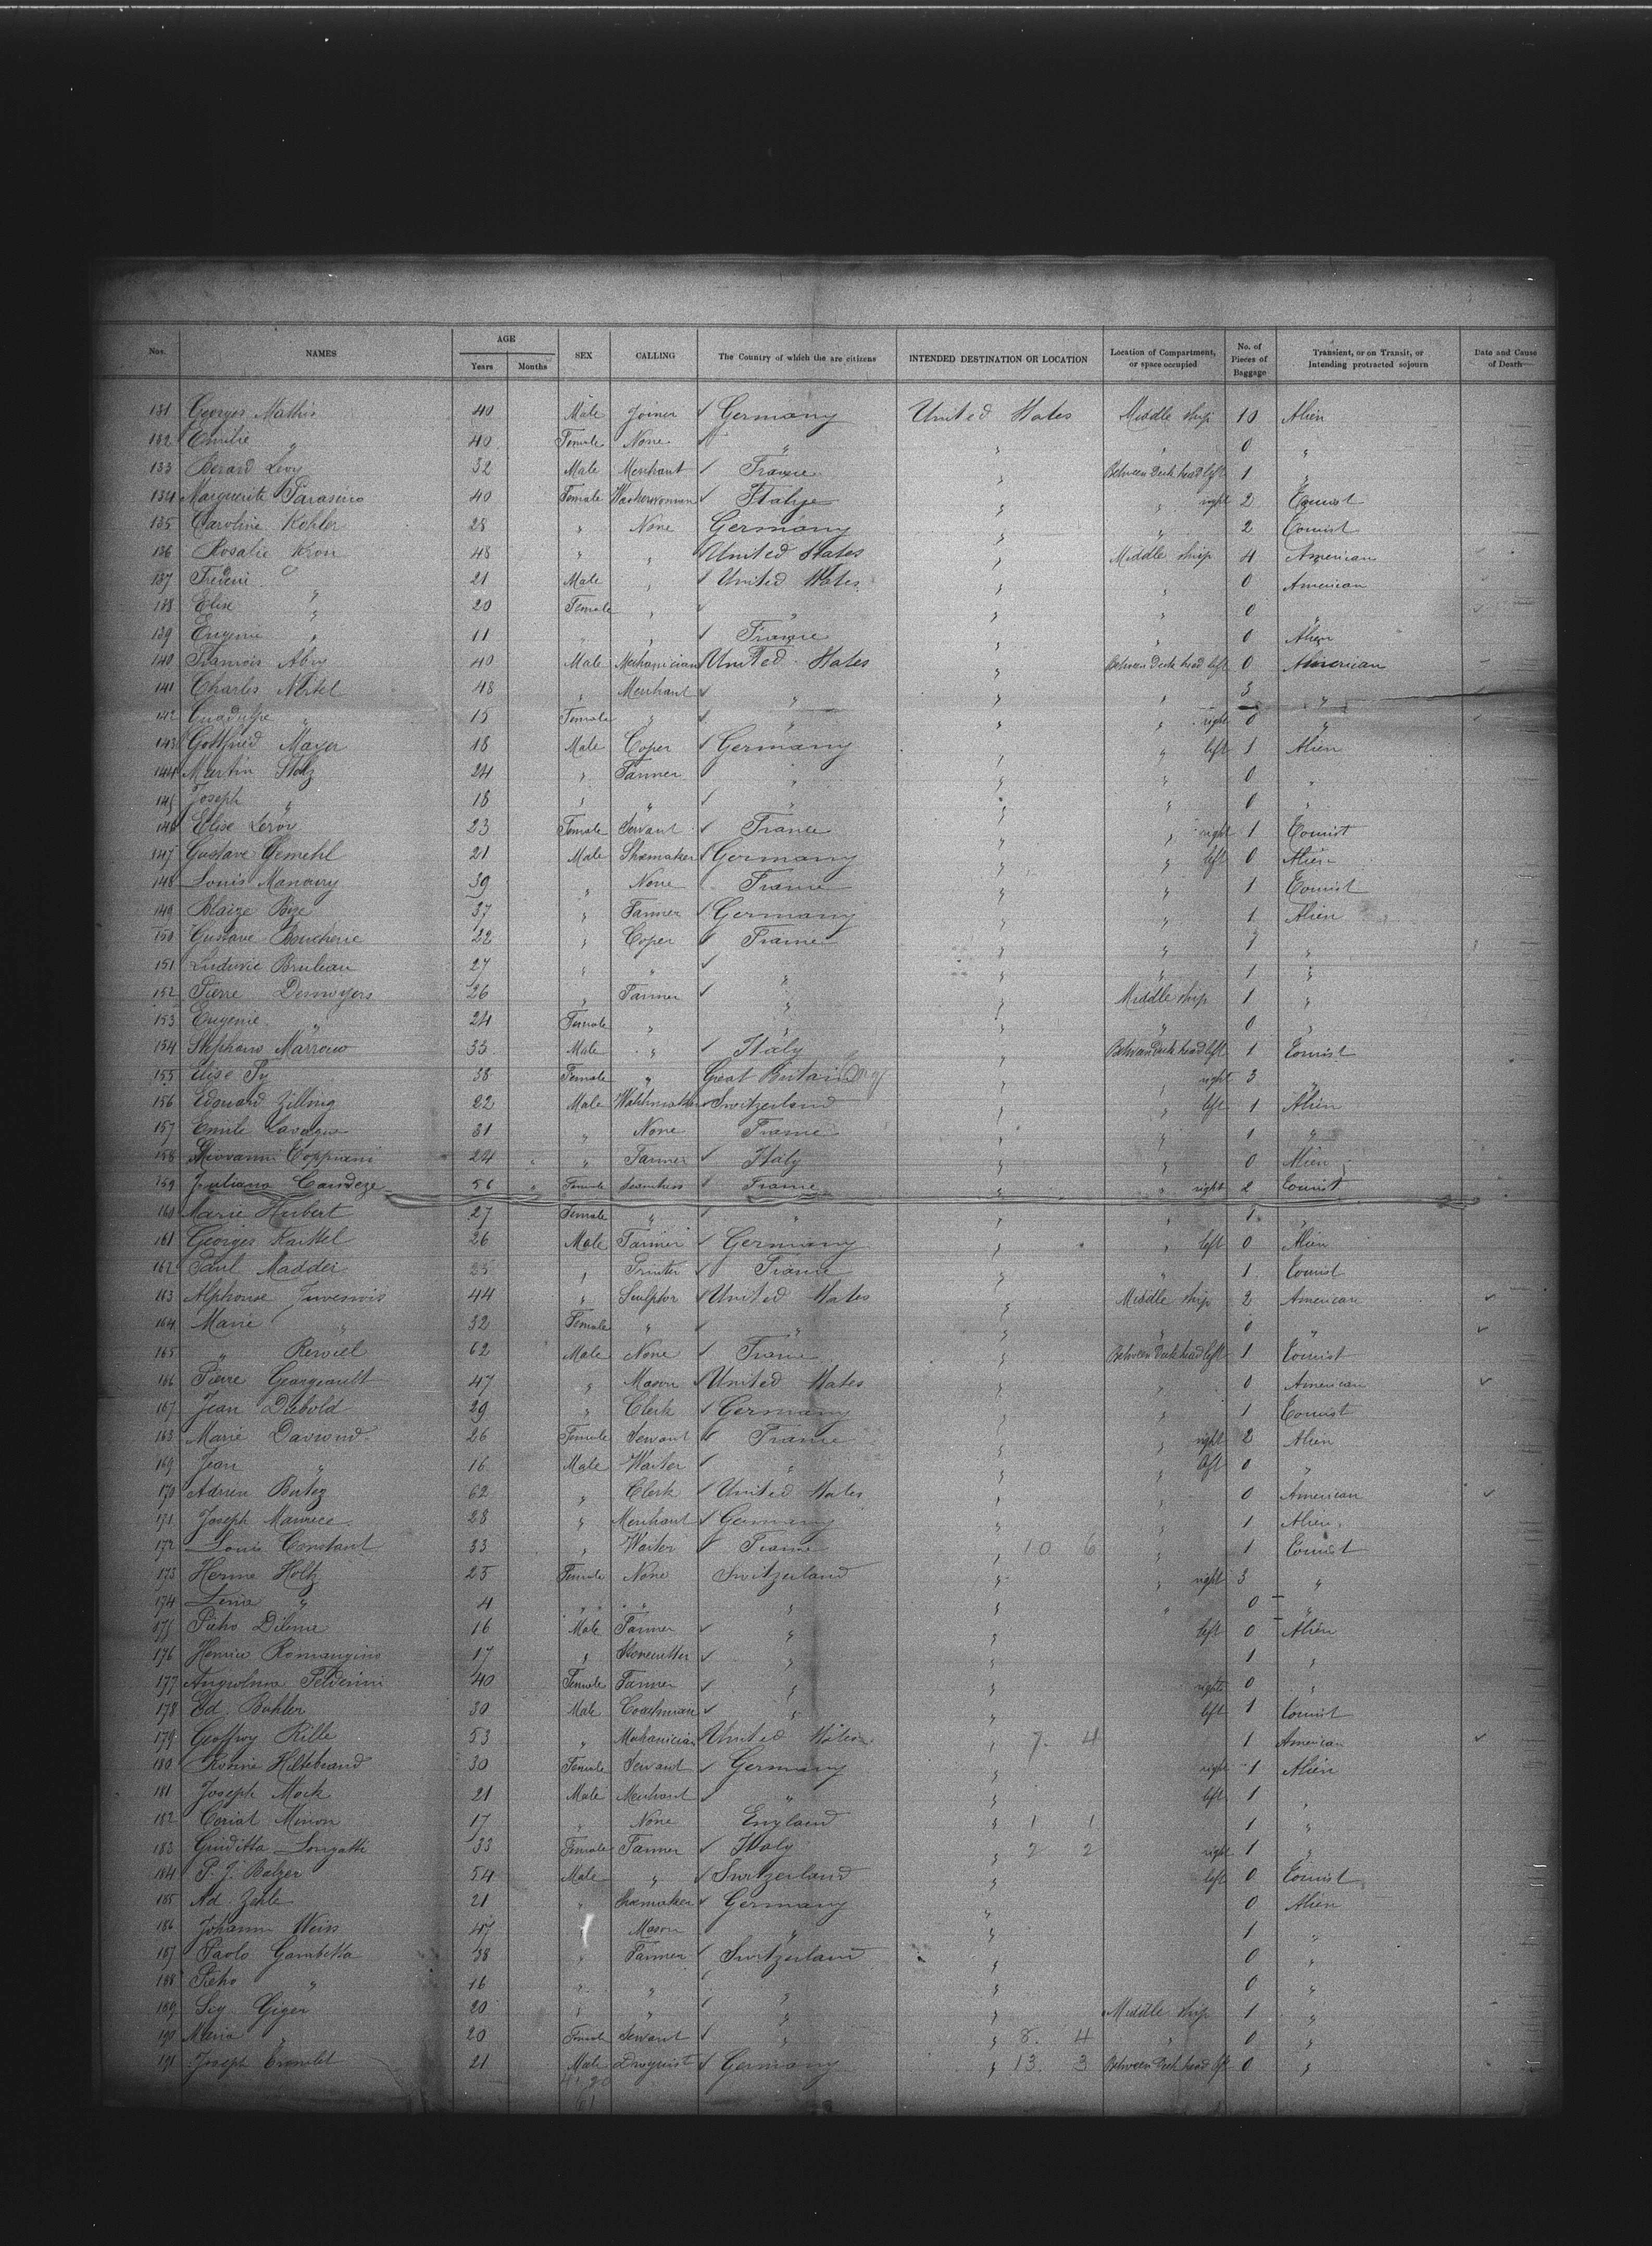 Nos. NAMES AGE Years Months SEX CALLING The Country of which the are citizens INTENDED DESTINATION OR LOCATION Location of Compartment, or space occupied No. of Pieces of Baggage Transient, or on Transit, or Intending protracted sojourn Date and Cause of Death
131 Georges Mathis 40 Male Joiner Germany United States Middle ship 10 Alien
132 Emilie " 40 Female None " " " 0 "
133 Berard Levy 32 Male Merchant France " Between Deck head left 1 "
134 Marguerite 40 Female Washerwomen Italye " " right 2 Tourist
135 Caroline Kohler 28 " None Germany " " 2 Tourist
136 Rosalie Kron 48 " " United States " Middle ship 4 American
137 " 21 Male " United States " " 0 American
138 Elise " 20 Female " " " " 0 "
139 Eugenie " 11 " " France " " 0 Alien
140 Francois Abry 40 Male Mechanician United States " Between Deck head left 0 American
141 Charles 48 " Merchant " " " 3 "
142 " 15 Female " " " " right 0 "
143 Gottfried Mayer 18 Male Coper Germany " " left 1 Alien
144 Martin Stolz 24 " Farmer " " " 0 "
145 Joseph " 18 " " " " " 0 "
146 Elise Leroy 23 Female Servant France " " right 1 Tourist
147 Gustave Gemehl 21 Male Shoemaker Germany " " left 0 Alien
148 Louis 39 " None France " " 1 Tourist
149 Blaize Boze 37 " Farmer Germany " " 1 Alien
150 Gustave Boucherie 22 " Coper France " " 1 "
151 Ludovic Bruleau 27 " " " " " 1 "
152 Pierre Desnoyers 26 " Farmer " " Middle ship 1 "
153 Eugenie " 24 Female " " " " 0 "
154 35 Male " Italy " Between Deck head left 1 Tourist
155 Elise 38 Female " Great Britain " right 3 "
156 Edouard Zillmg 22 Male Watchmaker Switzerland " " left 1 Alien
157 Emile 31 " None France " " 1 "
158 Giovanni 24 " Farmer Italy " " 0 Alien
159 Juliana Candeze 56 Female Seamstress France " " right 2 Tourist
160 Marie Hubert 27 Female " " " " 1 "
161 Georges 26 Male Farmer Germany " " left 0 Alien
162 Paul Maddei 25 " Printer France " " 1 Tourist
163 Alphonse 44 " Sculptor United States " Middle ship 2 American
164 Marie " 32 Female " " " " 0 "
165 " 62 Male None France " Between Deck head left 1 Tourist
166 Pierre Georgeault 47 " Mason United States " " 0 American
167 Jean Diebold 29 " Clerk Germany " " 1 Tourist
168 Marie Daviond 26 Female Servant France " " right 2 Alien
169 Jean " 16 Male Waiter " " " left 0 "
170 Adrien Butez 62 " Clerk United States " " 0 American
171 Joseph Maurice 28 " Merchant Germany " " 1 Alien
172 Louis Constant 33 " Waiter France " 10 6 " 1 Tourist
173 Hermine Holtz 25 Female None Switzerland " " right 3 "
174 Lina " 4 " " " " " 0 "
175 16 Male Farmer " " left 0 Alien
176 Romangino 17 " Stonecutter " " 1 "
177 40 Female Farmer " " right 0 "
178 Ed. Buhler 30 Male Coachman " " left 1 Tourist
179 Geoffroy Rille 53 " Mechanician United States " 7 4 1 American
180 Rosine Hiltebrand 30 Female Servant Germany " right 1 Alien
181 Joseph Mock 21 Male Merchant " " left 1 "
182 Minon 17 " None England " 1 1 1 "
183 Giuditta Longatti 33 Female Farmer Italy " 2 2 right 1 "
184 P. J. Balzer 54 Male " Switzerland " left 0 Tourist
185 Ad. 21 " Shoemaker Germany " 0 Alien
186 Johann Weiss 47 Mason " " 1 "
187 Paolo Gambetta 38 " Farmer Switzerland " 0 "
188 Pietro " 16 " " " " 0 "
189 Giger 20 " " " " Middle ship 1 "
190 Maria " 20 Female Servant " " 8 4 " 0 "
191 Joseph 21 Male Germany " 13 3 Between Deck head left 0 "
61